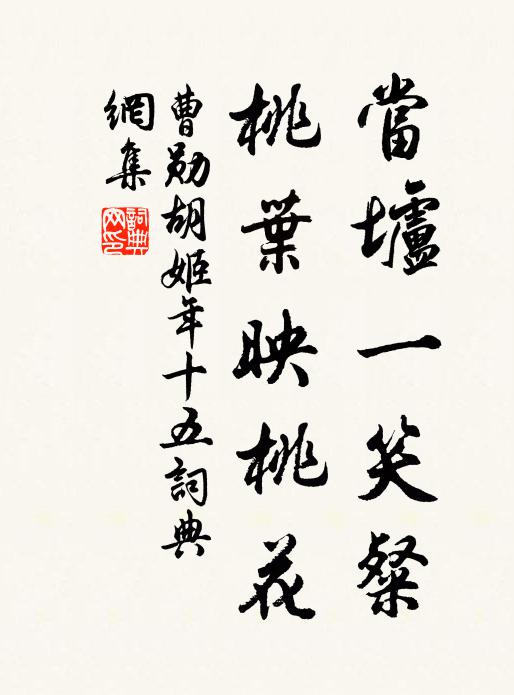 當壚一笑粲
桃葉映桃花
曹勛胡姬年十五詞典
網集
詞典
网印